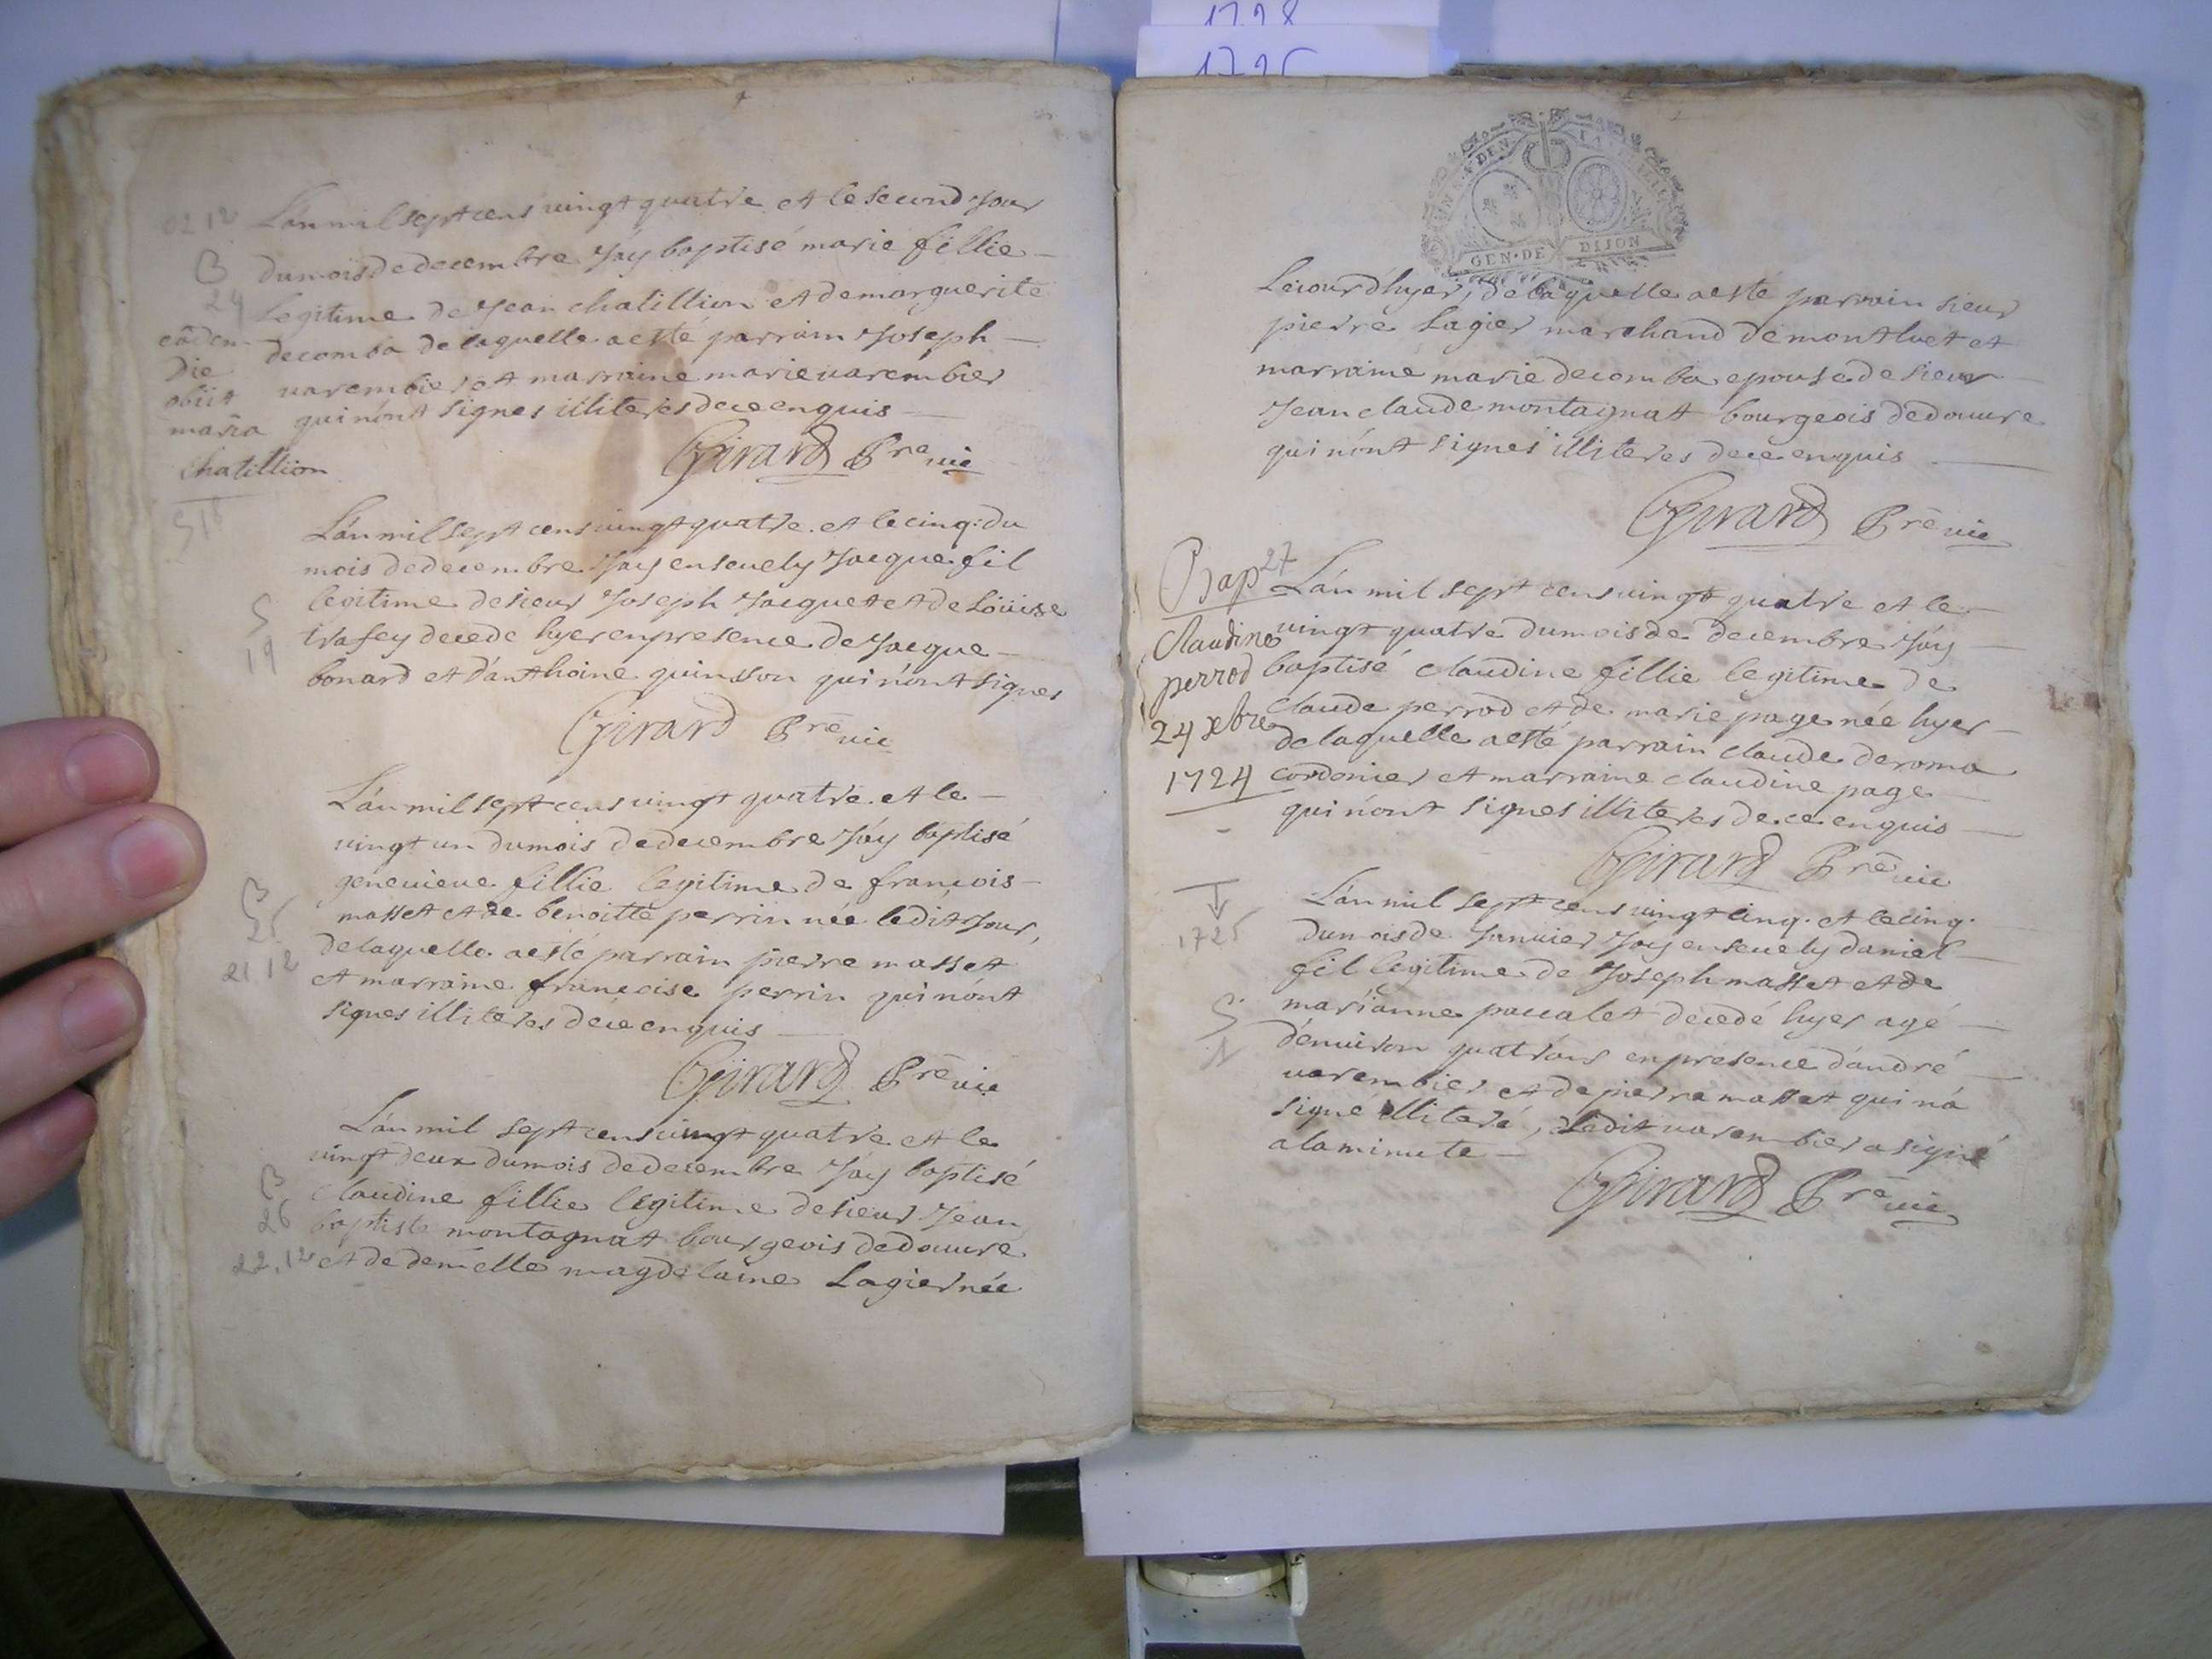 1728
1725
02 12 L'an mil sept cens vingt quatre et le second jour
B du mois de decembre j'ay baptisé marie fillie
24 legitime de jean chatillion et de marguerite
eâdem decomba de laquelle a esté parrain joseph
die varembier et marraine marie varembier
obiit qui n'ont signes illiteres de ce enquis
maria
chatillion
Girard Pre vic
S 18
L'an mil sept cens vingt quatre et le cinq: du
mois de decembre j'ay ensevely jacque fil
legitime de sieur joseph jacquet et de Loüise
S trafey decede hyer en presence de jacque
19 bonard et d'anthoine quinsson qui n'ont signes
Girard Pre vic
L'an mil sept cens vingt quatre et le
vingt un du mois de decembre j'ay baptisé
genevieve fillie legitime de françois
B masset et de benoitte perrin née ledit jour,
25 de laquelle a esté parrain pierre masset
21 12 et marraine françoise perrin qui n'ont
signes illiteres de ce enquis
Girard Pre vic
L'an mil sept cens vingt quatre et le
vingt deux du mois de decembre j'ay baptisé
B claudine fillie legitime de sieur jean
26 baptiste montagnat bourgeois de douvre
22.12 et de demelle magdelaine Lagier née
GEN·DE DIJON
Le jour d'hyer, de laquelle a esté parrain sieur
pierre Lagier marchand de montluet et
marraine marie decomba epouse de sieur
jean claude montagnat bourgeois de douvre
qui n'ont signes illiteres de ce enquis
Girard Pre vic
Bap 27 L'an mil sept cens vingt quatre et le
Claudine vingt quatre du mois de decembre j'ay
perrod baptisé claudine fillie legitime de
24 xbre claude perrod et de marie page née hyer
de laquelle a esté parrain claude deroma
1724 cordonier et marraine claudine page
qui n'ont signes illiteres de ce enquis
Girard Pre vic
1725
L'an mil sept cens vingt cinq. et le cinq.
du mois de janvier j'ay ensevely daniel
fil legitime de joseph masset et de
S marianne paccalet decedé hyer agé
1 d'environ quatr'ans en presence d'andré
varembier et de pierre masset qui n'a
signé illiteré, ledit varembier a signé
a la minute
Girard Pre vic